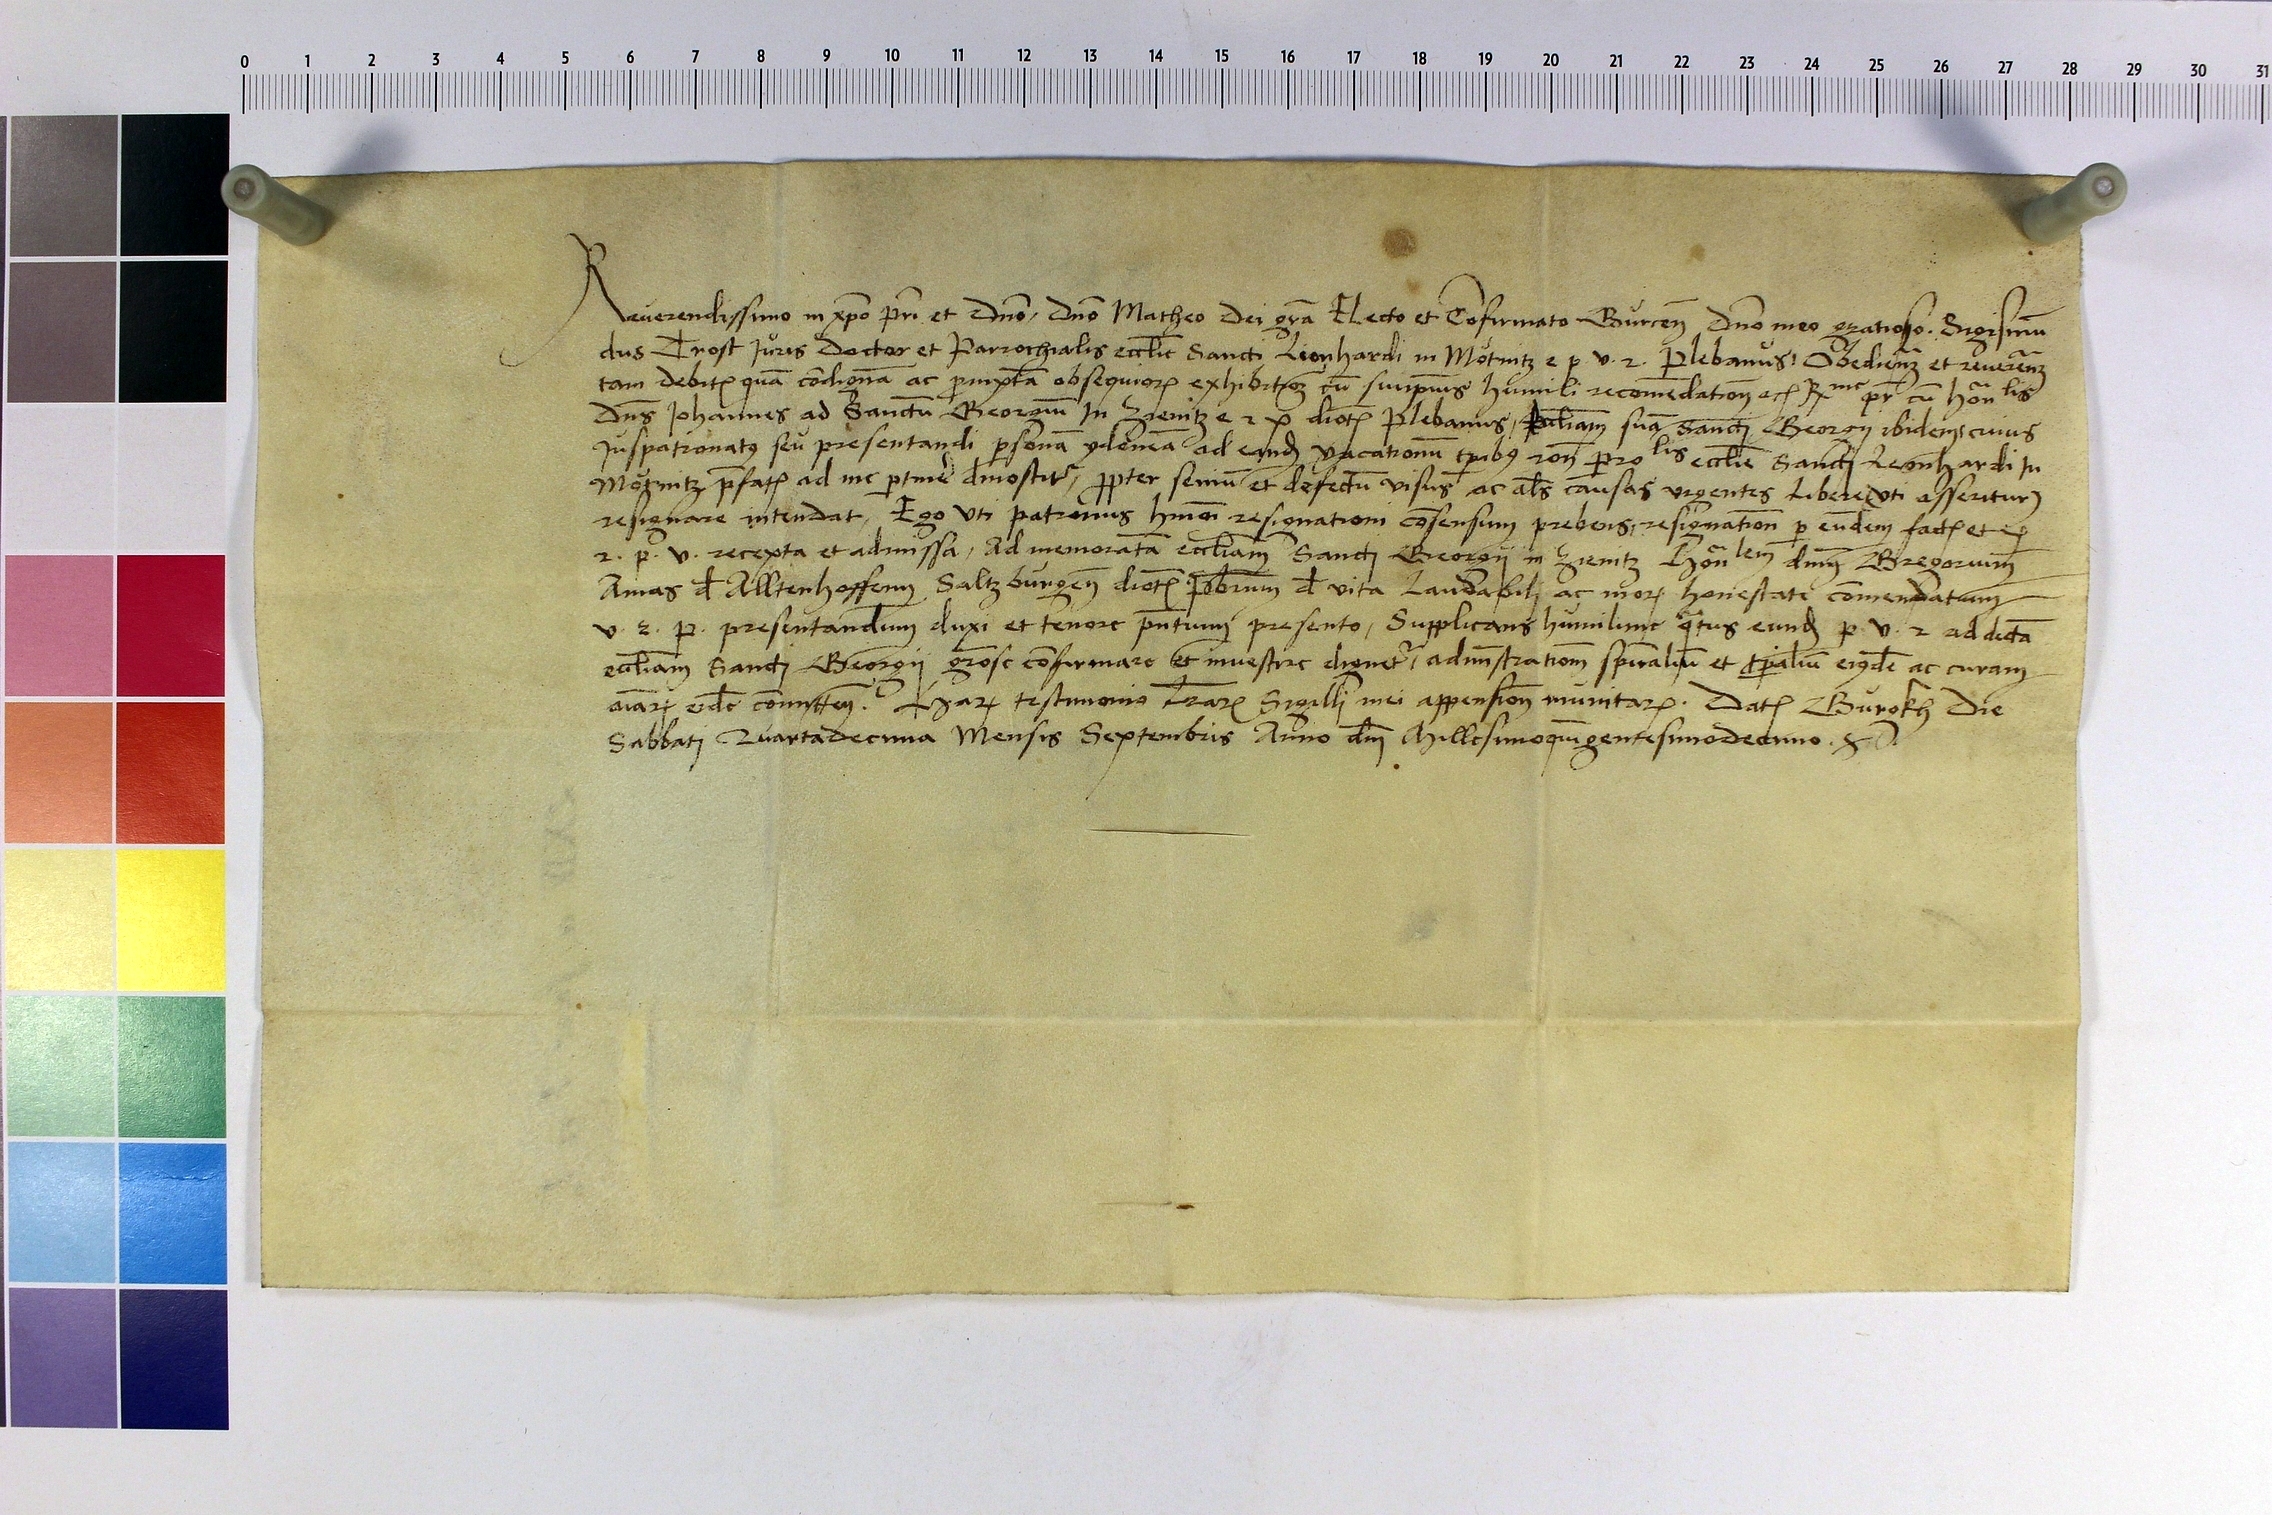 0 1 2 3 4 5 6 7 8 9 10 11 12 13 14 15 16 17 18 19 20 21 22 23 24 25 26 27 28 29 30 31
Reuerendissimo in xpo pri et dno, dno Matheo dei gra Electo et Confirmato Gurceñ dno meo gratioso. Sigismū
dus Trost Juris doctor et Parrochialis ecclie Sancti Lienhardi in Motnitz e p. v. r. Plebanus, Obedienž et reuerenž
tam debitꝫ quā condignā ac pmixtā obsequiorꝫ exhibitioꝫ cū suiipius humili recomēdation ꝛcꝫ Rxme pr cū honlis
dns Johannes ad Sanctū Georgiū In Zienitz e r p diotꝫ Plebanus, eccliam suā Sancti Georgij ibidem, cuius
Juspatronatꝰ seu presentandi psonā ydoneā ad eandꝫ vacationū tpibꝰ roñ parrolis ecclie Sancti Leonhardi In
Motnitz pfatꝫ ad me ptinē dinoscitr, ppter seniū et defectū visus ac als causas vrgentes Libere, vti asseritur
resignare intendat, Ego vti patronus hmoi resignationi consensum prebens, resignation p eundem factꝫ et p
r. p. v. recepta et admissa, Ad memoratā eccliam Sancti Georgij in Zienitz Honlem dnm Gregorium
Amas de Alltenhoffenn Saltzburgeñ diotꝫ pbrum de vita Laudabilj ac morꝫ honestate comendatum
v. r. p. presentandum duxi et tenore pntium presento, Supplicans humilime qtus eundꝫ p. v. r ad dictā
eccliam Sancti Georgij grose confirmare et inuestire dignetr, adminstrationem spiralium et tpalium eiusde ac curam
aiarꝫ eide committeñ. Harꝫ testimonio Lrarꝫ Sigillj mei appension munitarꝫ. Datꝫ Gurokh Die
Sabbatj Quartadecima Mensis Septembris Anno dni Millesimoquingentesimodecimo.